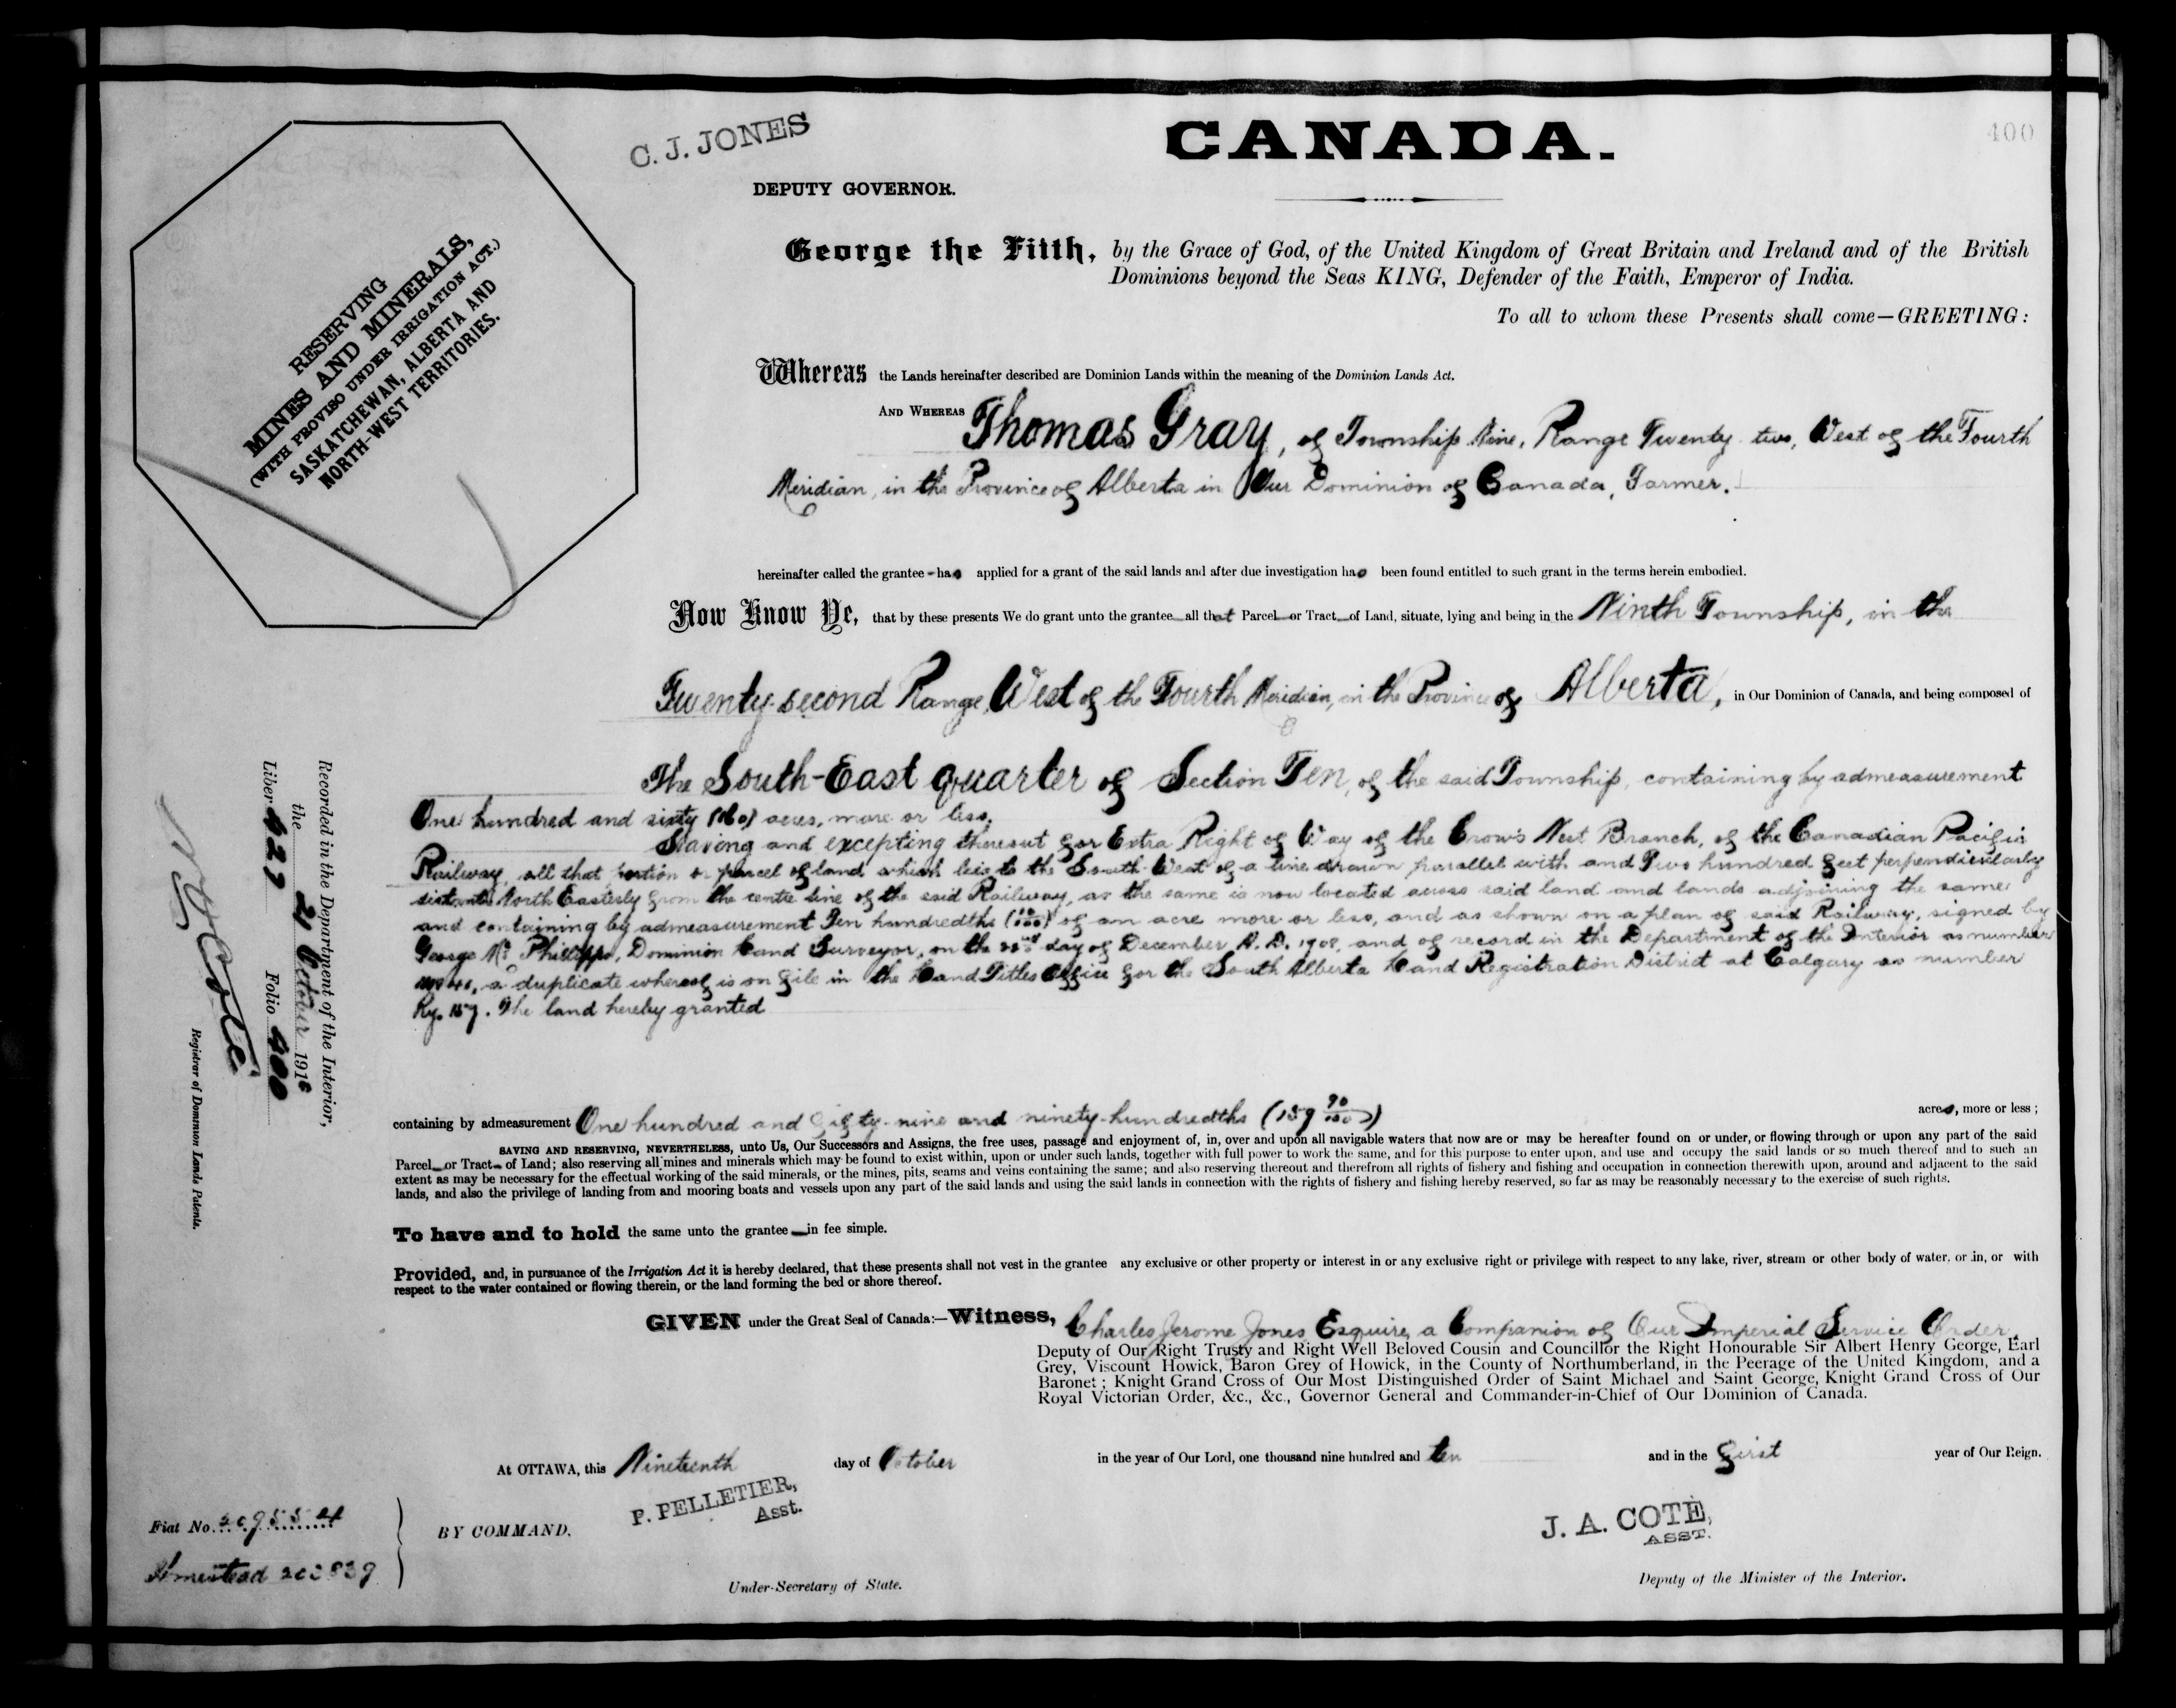 C. J. JONES
CANADA.
400
DEPUTY GOVERNOR.
George the Fifth, by the Grace of God, of the United Kingdom of Great Britain and Ireland and of the British
Dominions beyond the Seas KING, Defender of the Faith, Emperor of India.
To all to whom these Presents shall come—GREETING:
RESERVING
MINES AND MINERALS,
(WITH PROVISO UNDER IRRIGATION ACT.)
SASKATCHEWAN, ALBERTA AND
NORTH-WEST TERRITORIES.
Whereas the Lands hereinafter described are Dominion Lands within the meaning of the Dominion Lands Act.
AND WHEREAS Thomas Gray, of Township Nine, Range Twenty two, West of the Fourth
Meridian, in the Province of Alberta in Our Dominion of Canada, Farmer.
hereinafter called the grantee - has applied for a grant of the said lands and after due investigation has been found entitled to such grant in the terms herein embodied.
Now Know Ye, that by these presents We do grant unto the grantee all that Parcel or Tract of Land, situate, lying and being in the Ninth Township, in the
Twenty-second Range, West of the Fourth Meridian, in the Province of Alberta, in Our Dominion of Canada, and being composed of
The South-East quarter of Section Ten, of the said Township, containing by admeasurement
One hundred and sixty (160) acres, more or less.
Saving and excepting thereout for Extra Right of Way of the Crow's Nest Branch, of the Canadian Pacific
Railway, all that portion or parcel of land which lies to the South West of a line drawn parallel with and Two hundred feet perpendicularly
distant North Easterly from the centre line of the said Railway, as the same is now located across said land and lands adjoining the same
and containing by admeasurement Ten hundredths (10/100) of an acre more or less, and as shown on a plan of said Railway, signed by
George M. Philipps, Dominion Land Surveyor, on the 22nd day of December A. D. 1908, and of record in the Department of the Interior as number
a duplicate whereof is on file in the Land Titles Office for the South Alberta Land Registration District at Calgary as number
Ry. 157. The land hereby granted
containing by admeasurement One hundred and fifty-nine and ninety-hundredths (159 90/100) acres, more or less ;
SAVING AND RESERVING, NEVERTHELESS, unto Us, Our Successors and Assigns, the free uses, passage and enjoyment of, in, over and upon all navigable waters that now are or may be hereafter found on or under, or flowing through or upon any part of the said
Parcel or Tract of Land; also reserving all mines and minerals which may be found to exist within, upon or under such lands, together with full power to work the same, and for this purpose to enter upon, and use and occupy the said lands or so much thereof and to such an
extent as may be necessary for the effectual working of the said minerals, or the mines, pits, seams and veins containing the same; and also reserving thereout and therefrom all rights of fishery and fishing and occupation in connection therewith upon, around and adjacent to the said
lands, and also the privilege of landing from and mooring boats and vessels upon any part of the said lands and using the said lands in connection with the rights of fishery and fishing hereby reserved, so far as may be reasonably necessary to the exercise of such rights.
To have and to hold the same unto the grantee in fee simple.
Provided, and, in pursuance of the Irrigation Act it is hereby declared, that these presents shall not vest in the grantee any exclusive or other property or interest in or any exclusive right or privilege with respect to any lake, river, stream or other body of water, or in, or with
respect to the water contained or flowing therein, or the land forming the bed or shore thereof.
GIVEN under the Great Seal of Canada:—Witness, Charles Jerome Jones Esquire, a Companion of Our Imperial Service Order,
Deputy of Our Right Trusty and Right Well Beloved Cousin and Councillor the Right Honourable Sir Albert Henry George, Earl
Grey, Viscount Howick, Baron Grey of Howick, in the County of Northumberland, in the Peerage of the United Kingdom, and a
Baronet ; Knight Grand Cross of Our Most Distinguished Order of Saint Michael and Saint George, Knight Grand Cross of Our
Royal Victorian Order, &c., &c., Governor General and Commander-in-Chief of Our Dominion of Canada.
At OTTAWA, this Nineteenth day of October in the year of Our Lord, one thousand nine hundred and ten and in the first year of Our Reign.
P. PELLETIER,
Asst.
J. A. COTÉ,
ASST.
BY COMMAND.
Under-Secretary of State.
Deputy of the Minister of the Interior.
Fiat No. 209554
Homestead
Recorded in the Department of the Interior,
the 21 October 1910
Liber 427 Folio 400
N. O. Coté
Registrar of Dominion Lands Patents.